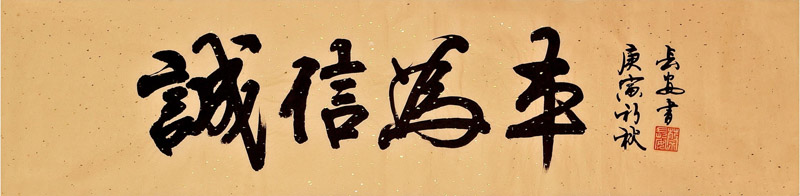 誠信為本
庚寅初秋
長安書